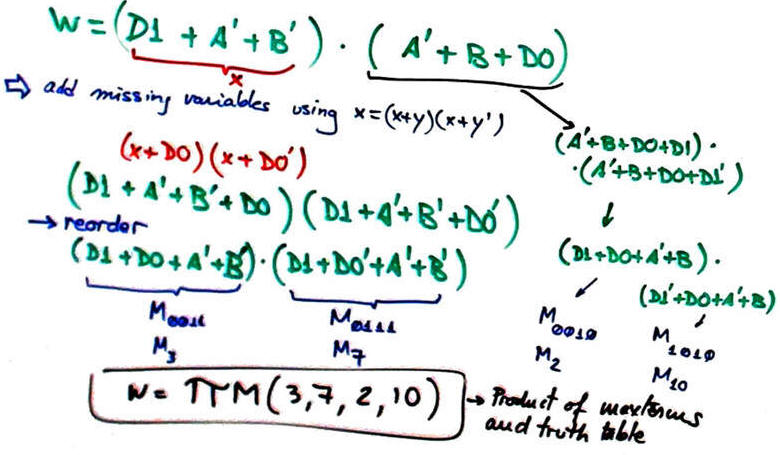 W = (D1 + A' + B') · (A' + B + D0)
x
⇨ add missing variables using x=(x+y)(x+y')
(x+D0)(x+D0')
(D1 + A' + B' + D0) (D1 + A' + B' + D0')
→ reorder
(D1+D0+A'+B') · (D1+D0'+A'+B')
M0011 M0111
M3 M7
(A'+B+D0+D1) ·
·(A'+B+D0+D1')
↓
(D1+D0+A'+B) ·
(D1'+D0+A'+B)
M0010 M1010
M2 M10
W = ΠM(3,7,2,10) → Product of maxterms
and truth table